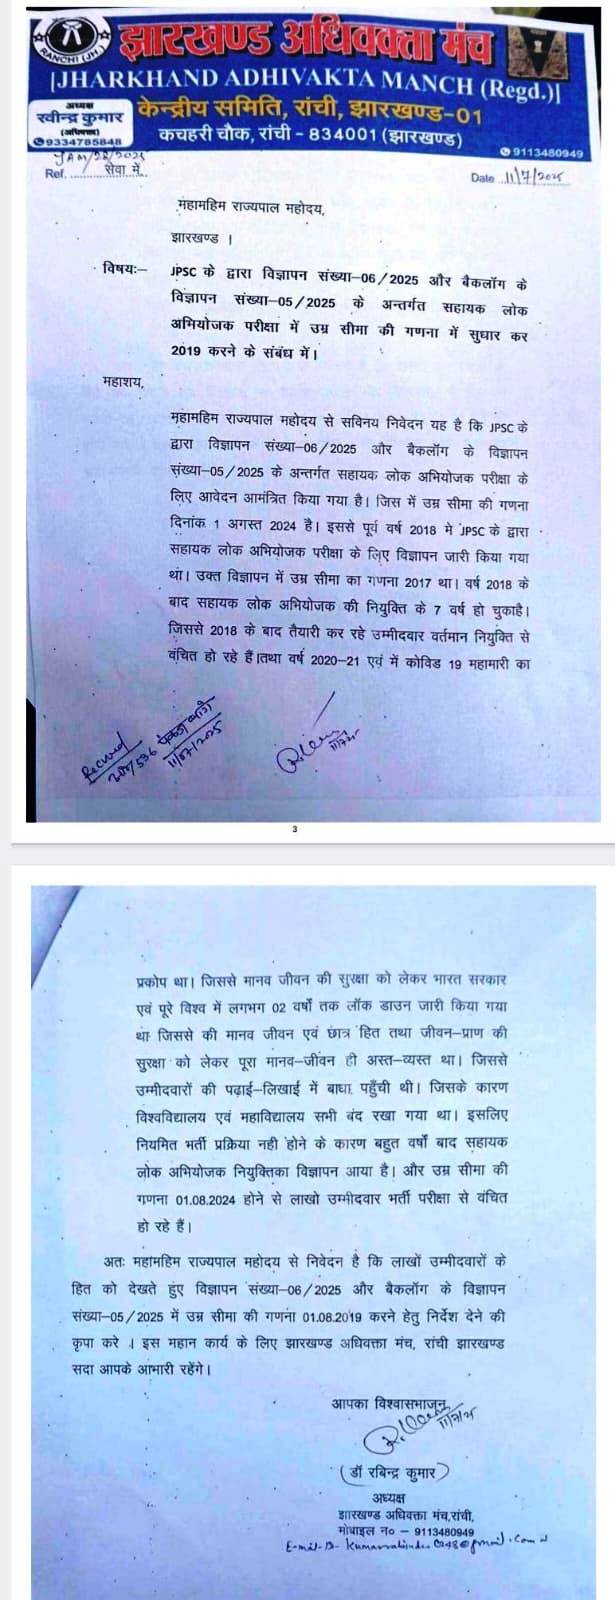 RANCHI (JH.)
झारखण्ड अधिवक्ता मंच
[JHARKHAND ADHIVAKTA MANCH (Regd.)]
अध्यक्ष
रवीन्द्र कुमार
(अधिवक्ता)
9334785848
केन्द्रीय समिति, रांची, झारखण्ड-01
कचहरी चौक, रांची - 834001 (झारखण्ड)
9113480949
JAM/22/2025
Ref. सेवा में
Date 11/7/2025
महामहिम राज्यपाल महोदय,
झारखण्ड ।
विषयः– JPSC के द्वारा विज्ञापन संख्या–06/2025 और बैकलॉग के
विज्ञापन संख्या–05/2025 के अन्तर्गत सहायक लोक
अभियोजक परीक्षा में उम्र सीमा की गणना में सुधार कर
2019 करने के संबंध में।
महाशय,
महामहिम राज्यपाल महोदय से सविनय निवेदन यह है कि JPSC के
द्वारा विज्ञापन संख्या–06/2025 और बैकलॉग के विज्ञापन
संख्या–05/2025 के अन्तर्गत सहायक लोक अभियोजक परीक्षा के
लिए आवेदन आमंत्रित किया गया है। जिस में उम्र सीमा की गणना
दिनांक 1 अगस्त 2024 है। इससे पूर्व वर्ष 2018 मे JPSC के द्वारा
सहायक लोक अभियोजक परीक्षा के लिए विज्ञापन जारी किया गया
था। उक्त विज्ञापन में उम्र सीमा का गणना 2017 था। वर्ष 2018 के
बाद सहायक लोक अभियोजक की नियुक्ति के 7 वर्ष हो चुकाहै।
जिससे 2018 के बाद तैयारी कर रहे उम्मीदवार वर्तमान नियुक्ति से
वंचित हो रहे हैं।तथा वर्ष 2020–21 एवं में कोविड 19 महामारी का
Received
11/07/2025
11/7/25
3
प्रकोप था। जिससे मानव जीवन की सुरक्षा को लेकर भारत सरकार
एवं पूरे विश्व में लगभग 02 वर्षो तक लॉक डाउन जारी किया गया
था जिससे की मानव जीवन एवं छात्र हित तथा जीवन–प्राण की
सुरक्षा को लेकर पूरा मानव–जीवन ही अस्त–व्यस्त था। जिससे
उम्मीदवारों की पढ़ाई–लिखाई में बाधा पहुँची थी। जिसके कारण
विश्वविद्यालय एवं महाविद्यालय सभी बंद रखा गया था। इसलिए
नियमित भर्ती प्रक्रिया नही होने के कारण बहुत वर्षों बाद सहायक
लोक अभियोजक नियुक्तिका विज्ञापन आया है। और उम्र सीमा की
गणना 01.08.2024 होने से लाखो उम्मीदवार भर्ती परीक्षा से वंचित
हो रहे हैं।
अतः महामहिम राज्यपाल महोदय से निवेदन है कि लाखों उम्मीदवारों के
हित को देखते हुए विज्ञापन संख्या–06/2025 और बैकलॉग के विज्ञापन
संख्या–05/2025 में उम्र सीमा की गणना 01.08.2019 करने हेतु निर्देश देने की
कृपा करे । इस महान कार्य के लिए झारखण्ड अधिवक्ता मंच, रांची झारखण्ड
सदा आपके आभारी रहेंगे।
आपका विश्वासभाजन
11/7/25
(डॉ रबिन्द्र कुमार)
अध्यक्ष
झारखण्ड अधिवक्ता मंच,रांची,
मोबाइल न० – 9113480949